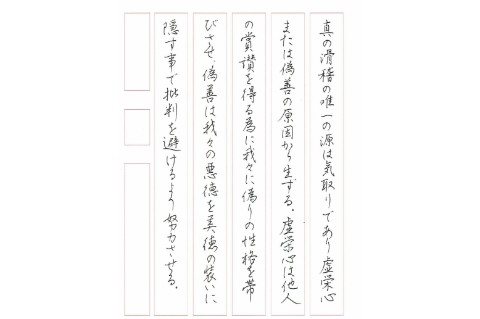 真の滑稽の唯一の源は気取りであり虚栄心
または偽善の原因から生ずる。虚栄心は他人
の賞讃を得る為に我々に偽りの性格を帯
びさせ、偽善は我々の悪徳を美徳の装いに
隠す事で批判を避けるよう努力させる。